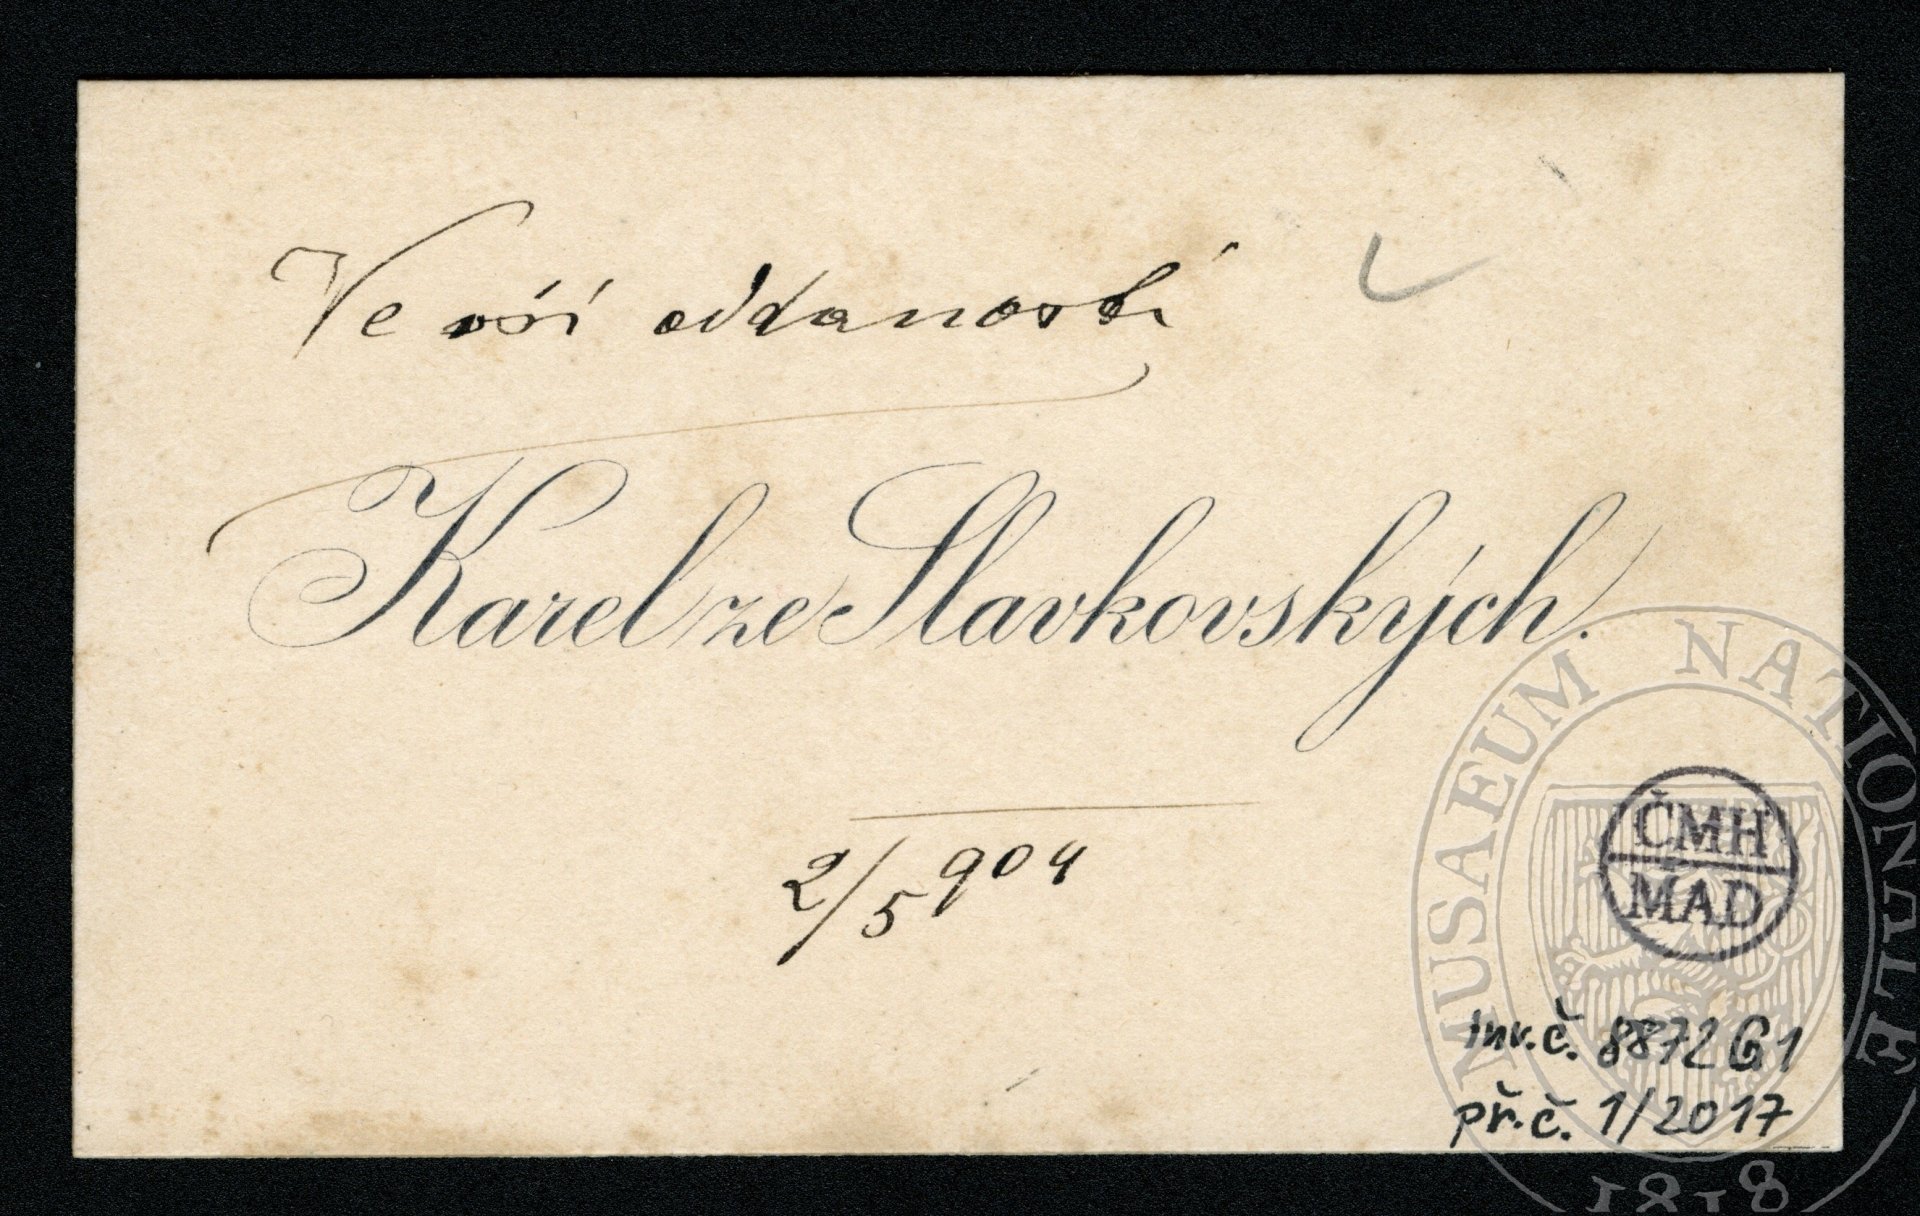 Ve vší oddanosti
Karel ze Slavkovských.
2/5 904
ČMH
MAD
inv.č. 8872 G1
př.č. 1/2017
MUSAEUM NATIONALE
1818